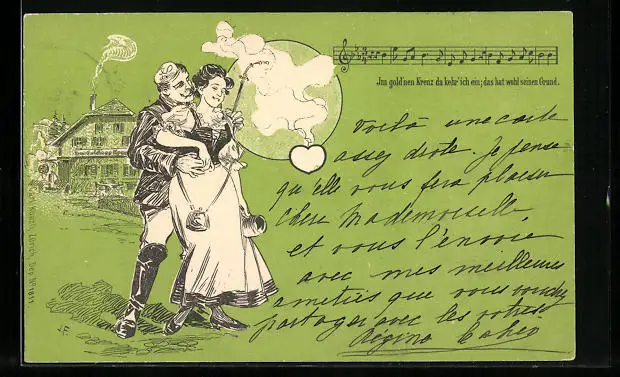 Jm gold'nen Kreuz da kehr' ich ein; das hat wohl seinen Grund.
Voilà une carte
assez drôle. Je pense
qu'elle vous fera plaisir
Chère Mademoiselle,
et vous l'envoie
avec mes meilleures
amitiés que vous voudrez
partager avec les vôtres
Régina
Zürich, Dep. No
J.F.